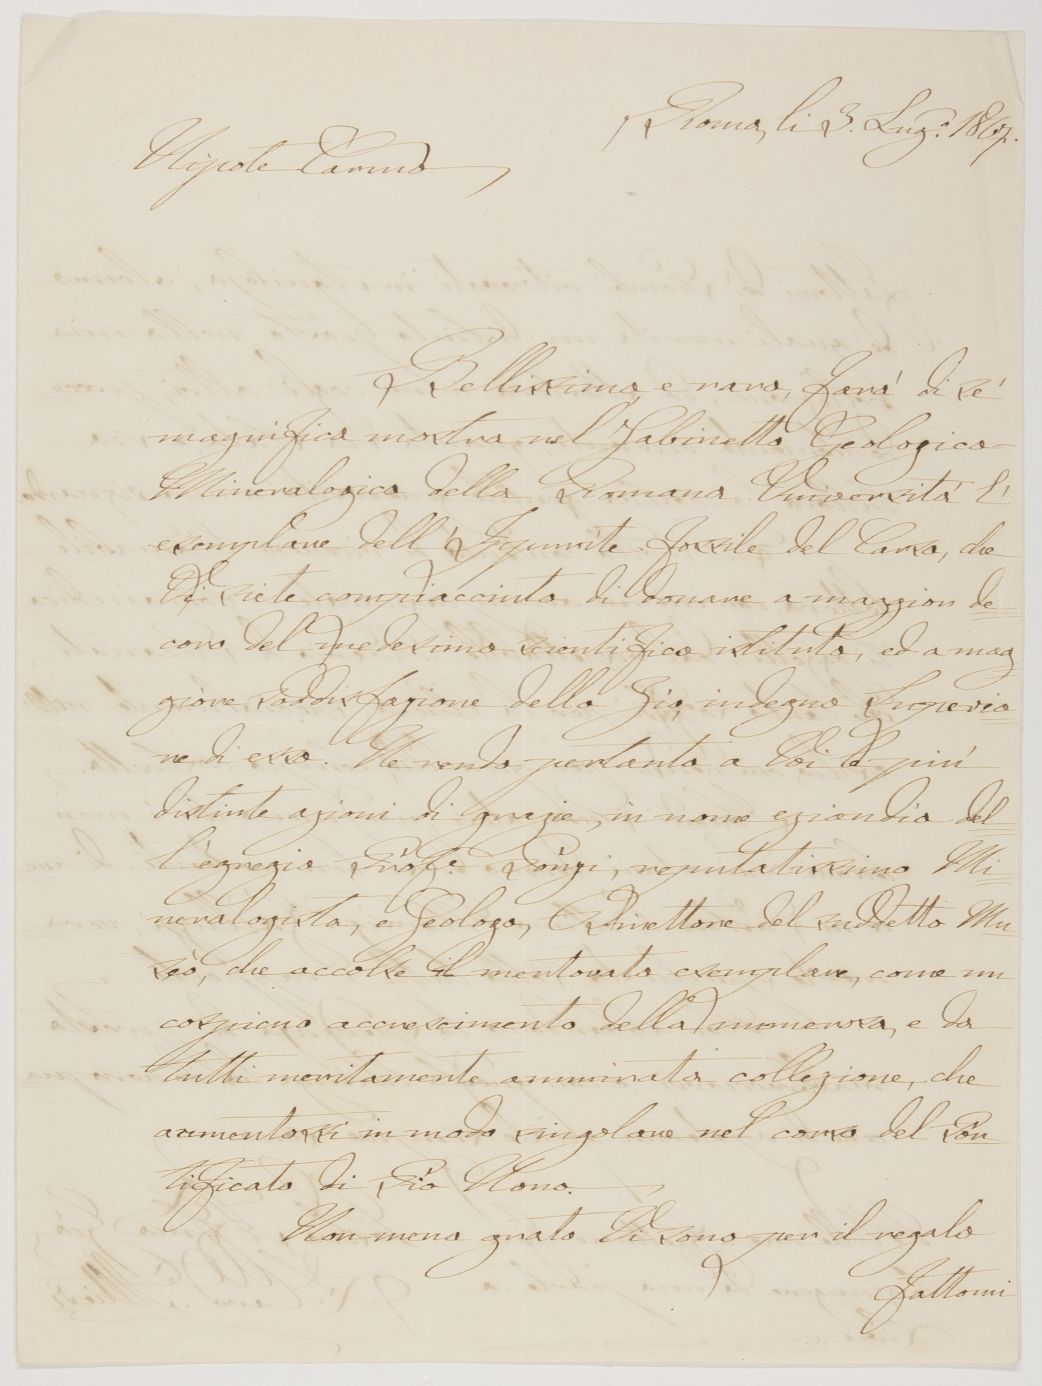 Roma, li 3. Lug.o 1867.
Nipote Carmo
Bellissimo, e raro, farà di sé
magnifica mostra nel Gabinetto Geologico
Mineralogico della Romana Università l'
esemplare dell'Ippurite fossile del Carso, che
Vi siete compiacciuto di donare a maggior de=
coro del medesimo scientifico istituto, ed a mag
giore soddisfazione dello Zio, indegno Superio=
re di esso. Ne rendo pertanto a Voi le più
distinte azioni di grazie, in nome eziandio del=
l'egregio Prof.e Ponzi, reputatissimo Mi=
neralogista, e Geologo, Direttore del suddetto Mu=
seo, che accolse il mentovato esemplare, come un
cospicuo accrescimento della numerosa, e da
tutti meritamente ammirata collezione, che
aumentossi in modo singolare nel corso del Pon
tificato di Pio Nono.
Non meno grato Vi sono per il regalo
fattomi